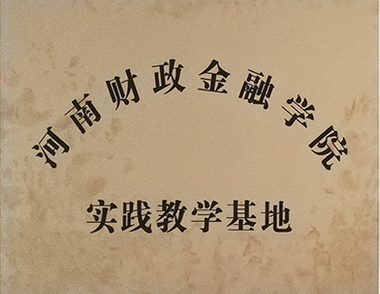 河南财政金融学院
实践教学基地